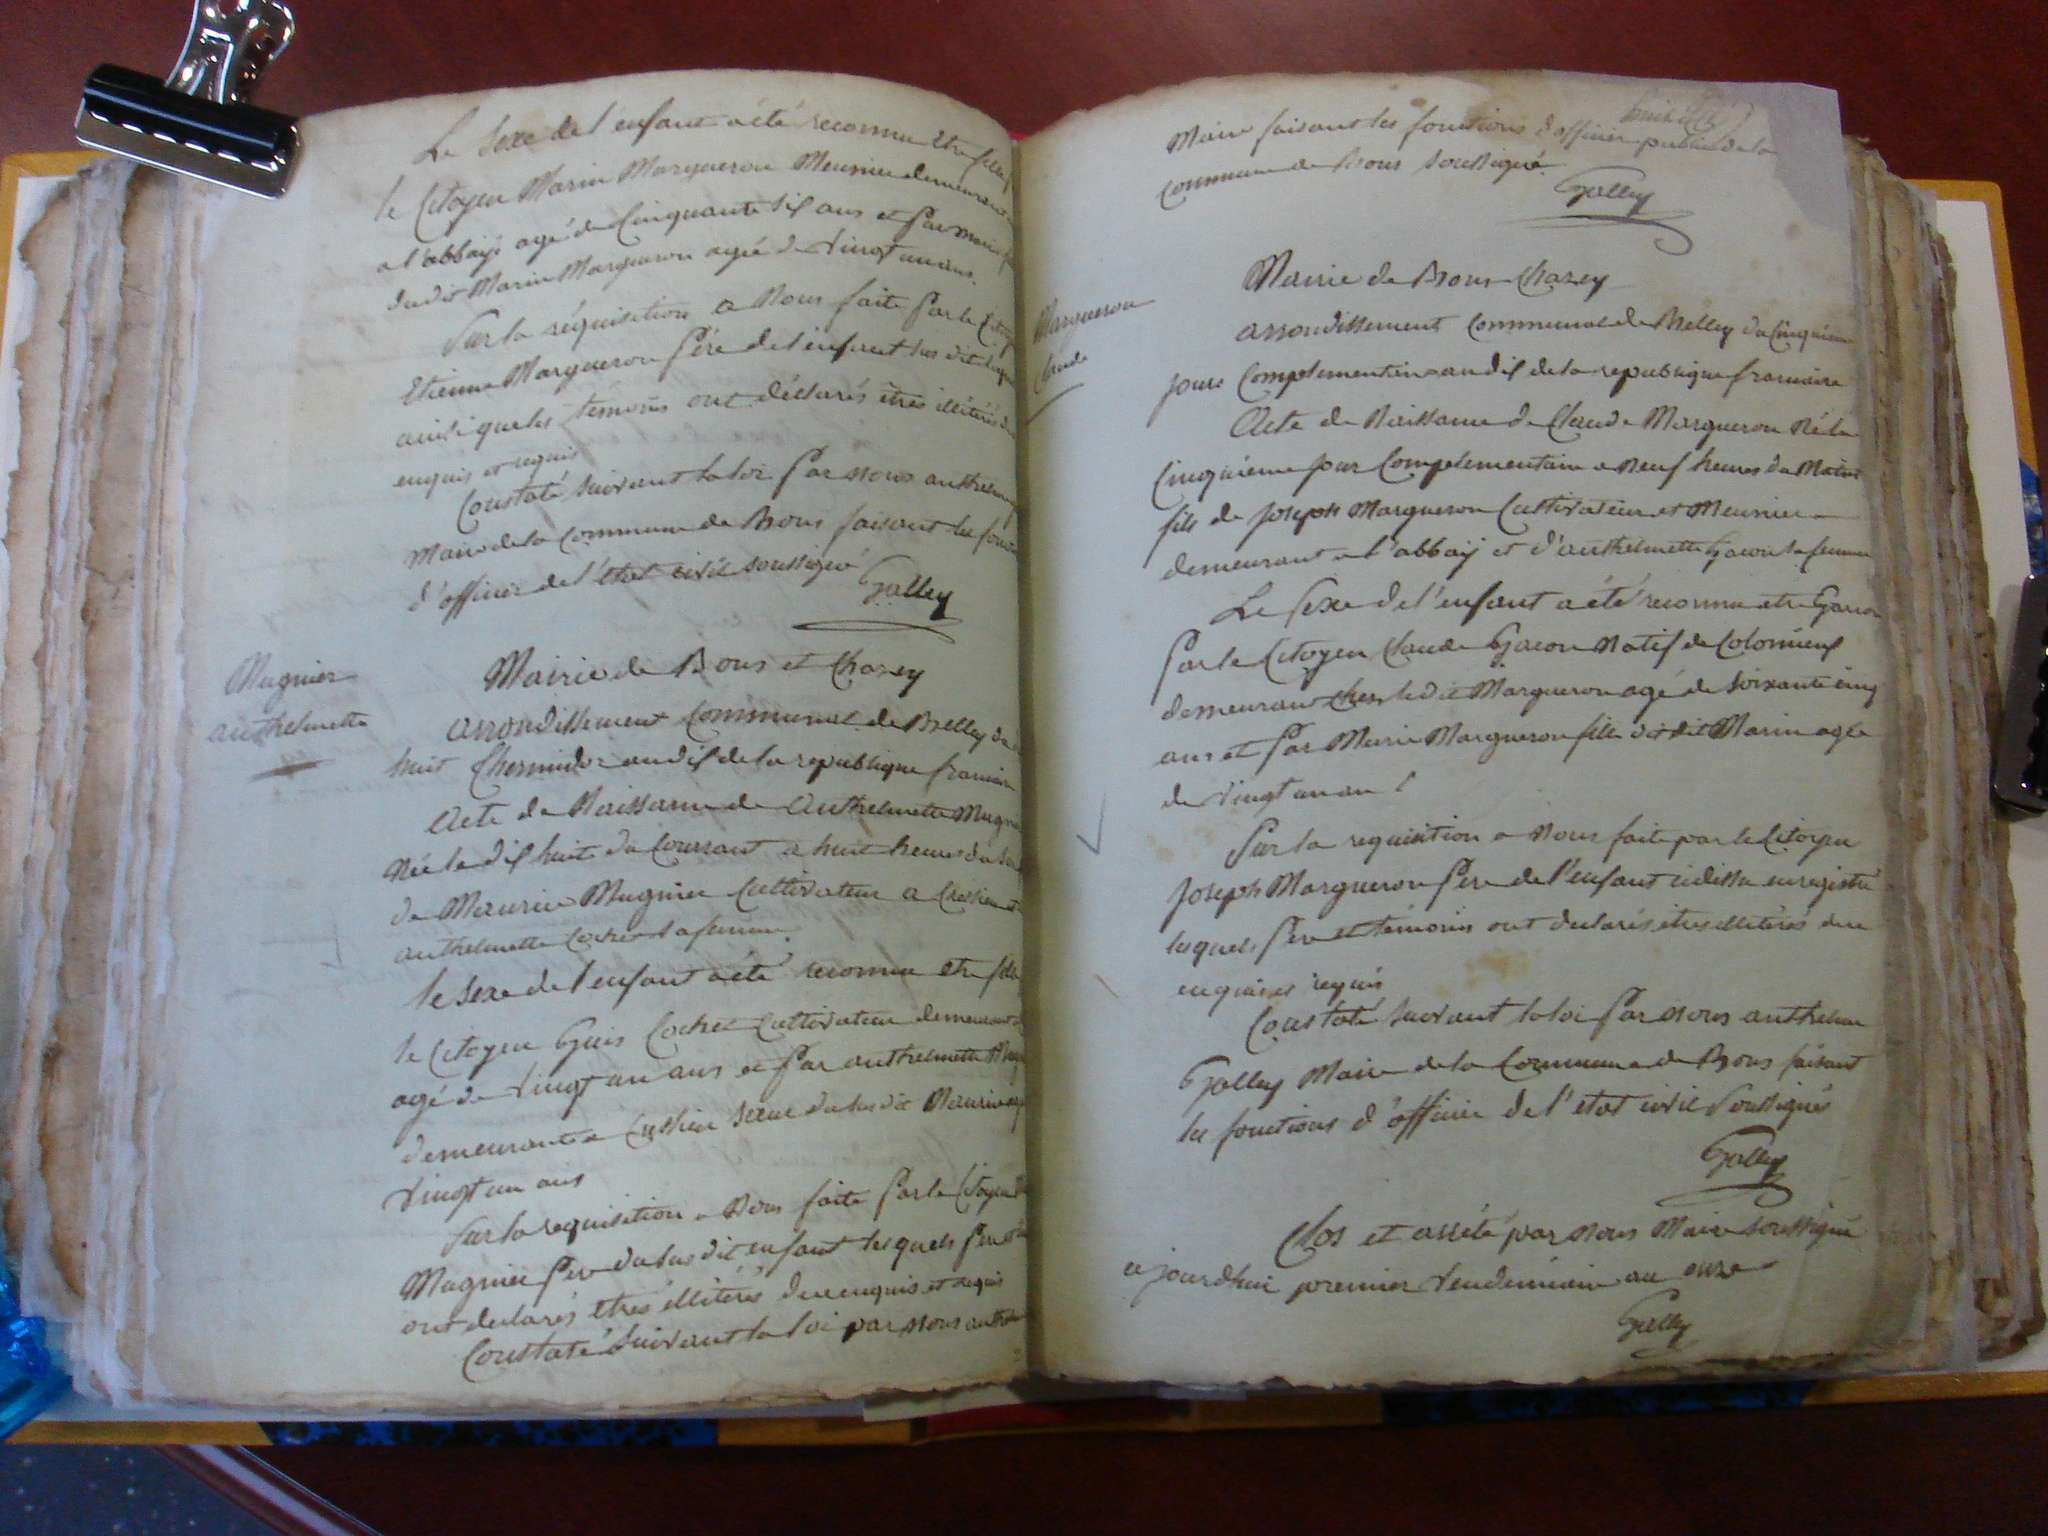 Le Sexe de l'enfant a été reconnu etre fille
le Citoyen Marin Marguerou Meunier demeurant
a l'abbaye agé de Cinquante six ans et par marie
du dit Marin Marguerou agée de vingt un ans
Sur la réquisition a Nous faite par le Citoyen
Etienne Marguerou Père de l'enfant sus dit
ainsi que les temoins ont déclarés êtres illitérés
enquis et requis
Constaté suivant la loi par nous anthelme
Maire de la Commune de Bons faisant les
d'officier de l'état civil soussigné
Galley
Mugnier
anthelmette
Mairie de Bons et Chazey
arrondissement Communal de Belley du
huit thermidor an dix de la republique
Acte de Naissance de Anthelmette
Née le dix huit du Courrant a huit heures du
de Maurice Mugnier Cultivateur a
anthelmette Cochet sa femme
le sexe de l'enfant a été reconnu etre
le Citoyen Cochet Cultivateur demeurant
agé de vingt un ans et par anthelmette
demeurante a soeur du sus dit Maurice
vingt un ans
Sur la requisition a Nous faite par le Citoyen
Mugnier pere du sus dit enfant lesquels pere
ont declarés etres illiterés de ce enquis et requis
Constaté suivant la loi par nous
Maire faisant les fonctions d'officier public de la
commune de Bons soussigné
Galley
Marguerou
Claude
Mairie de Bons Chazey
arrondissement Communal de Belley du Cinquieme
jours Complementaire an dix de la republique francaise
Acte de Naissance de Claude Marguerou Né le
Cinquieme jour Complementaire a neuf heures du Matin
fils de joseph Marguerou Cultivateur et Meunier
demeurant a l'abbaÿ et d'anthelmette Gacon sa femme
Le sexe de l'enfant a été reconnu etre Garcon
par le Citoyen Claude Gacon Natif de Colomieux
demeurant chez le dit Marguerou agé de soixante cinq
ans et par Marie Marguerou fille du dit Marin agée
de vingt un an
Sur la requisition a nous faite par le Citoyen
Joseph Marguerou pere de l'enfant cidessu enregistré
lesquels pere et temoins ont declarés etres illiterés de ce
enquis et requis
Constaté suivant la loi par nous anthelme
Galley Maire de la Commune de Bons faisant
les fonctions d'officier de l'etat civil soussignés
Galley
Clos et arrété par nous Maire soussigné
ce jourdhui premier vendemiaire an onze
Galley